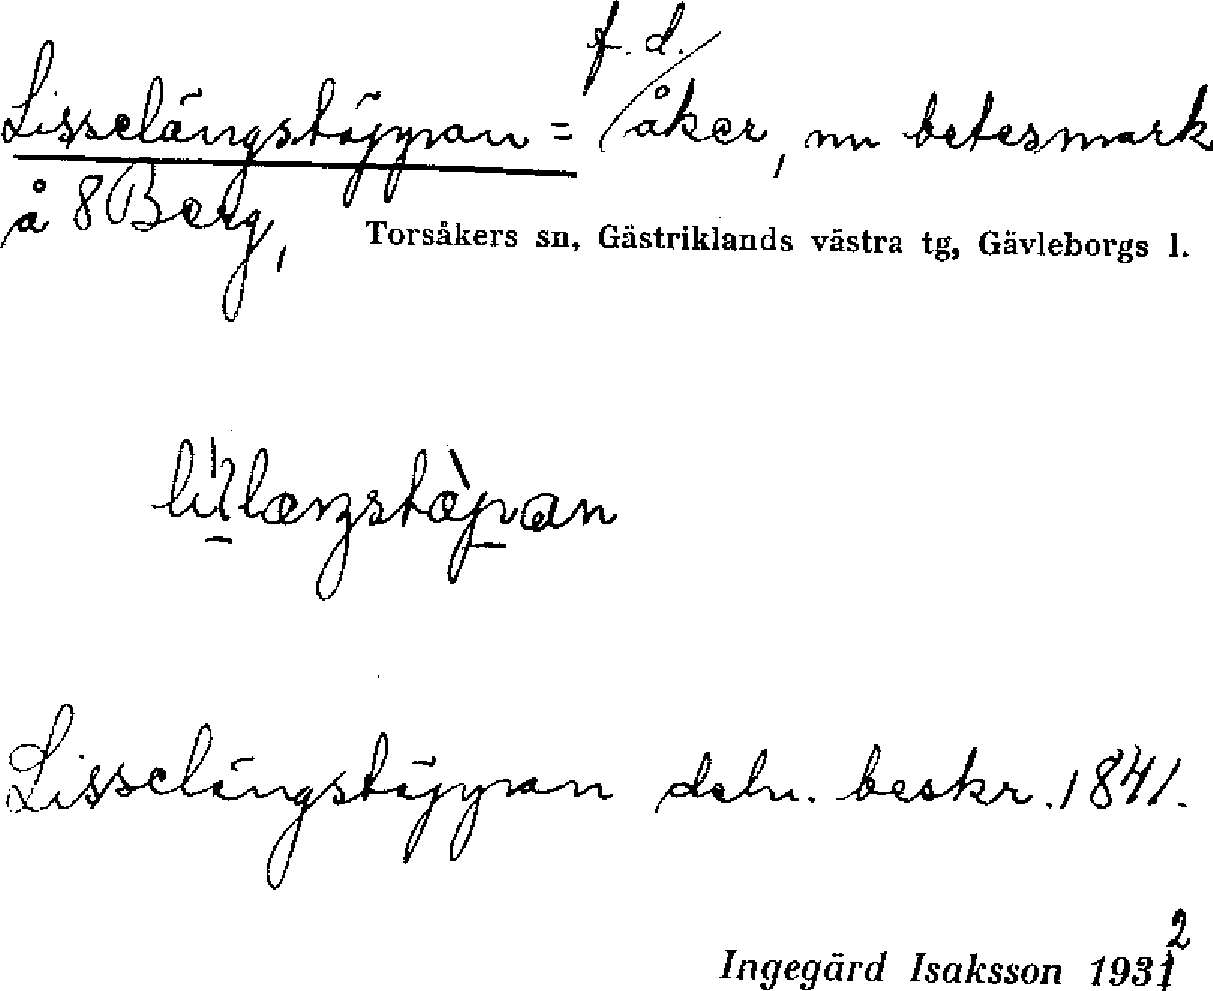 f. d.
Lisselängstäppan = åker, nu betesmark
å 8 Berg,
Torsåkers sn, Gästriklands västra tg, Gävleborgs l.
Lisselängstäppan deln. beskr. 1841.
Ingegärd Isaksson 1932